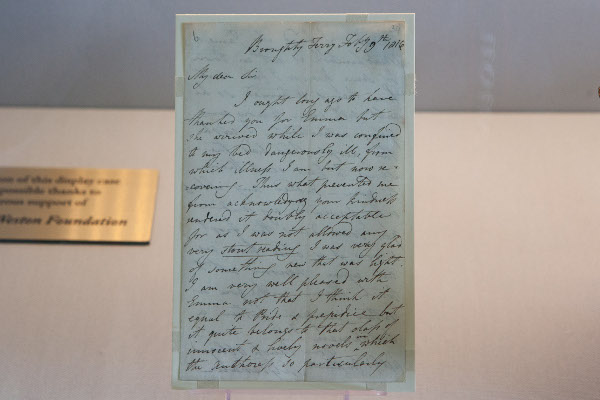 6
Broughty Ferry Feby 9th 1816
My dear Sir
I ought long ago to have
thanked you for Emma but
she arrived while I was confined
to my bed dangerously ill, from
which illness I am but now re-
covering. Thus what prevented me
from acknowledging your kindness
rendered it doubly acceptable
for as I was not allowed any
very stout reading I was very glad
of something new that was light
I am very well pleased with
Emma not that I think it
equal to Pride & prejudice but
it quite belongs to that class of
innocent & lively novels in which
the authoress so particularly
of this display case
possible thanks to
support of
Weston Foundation